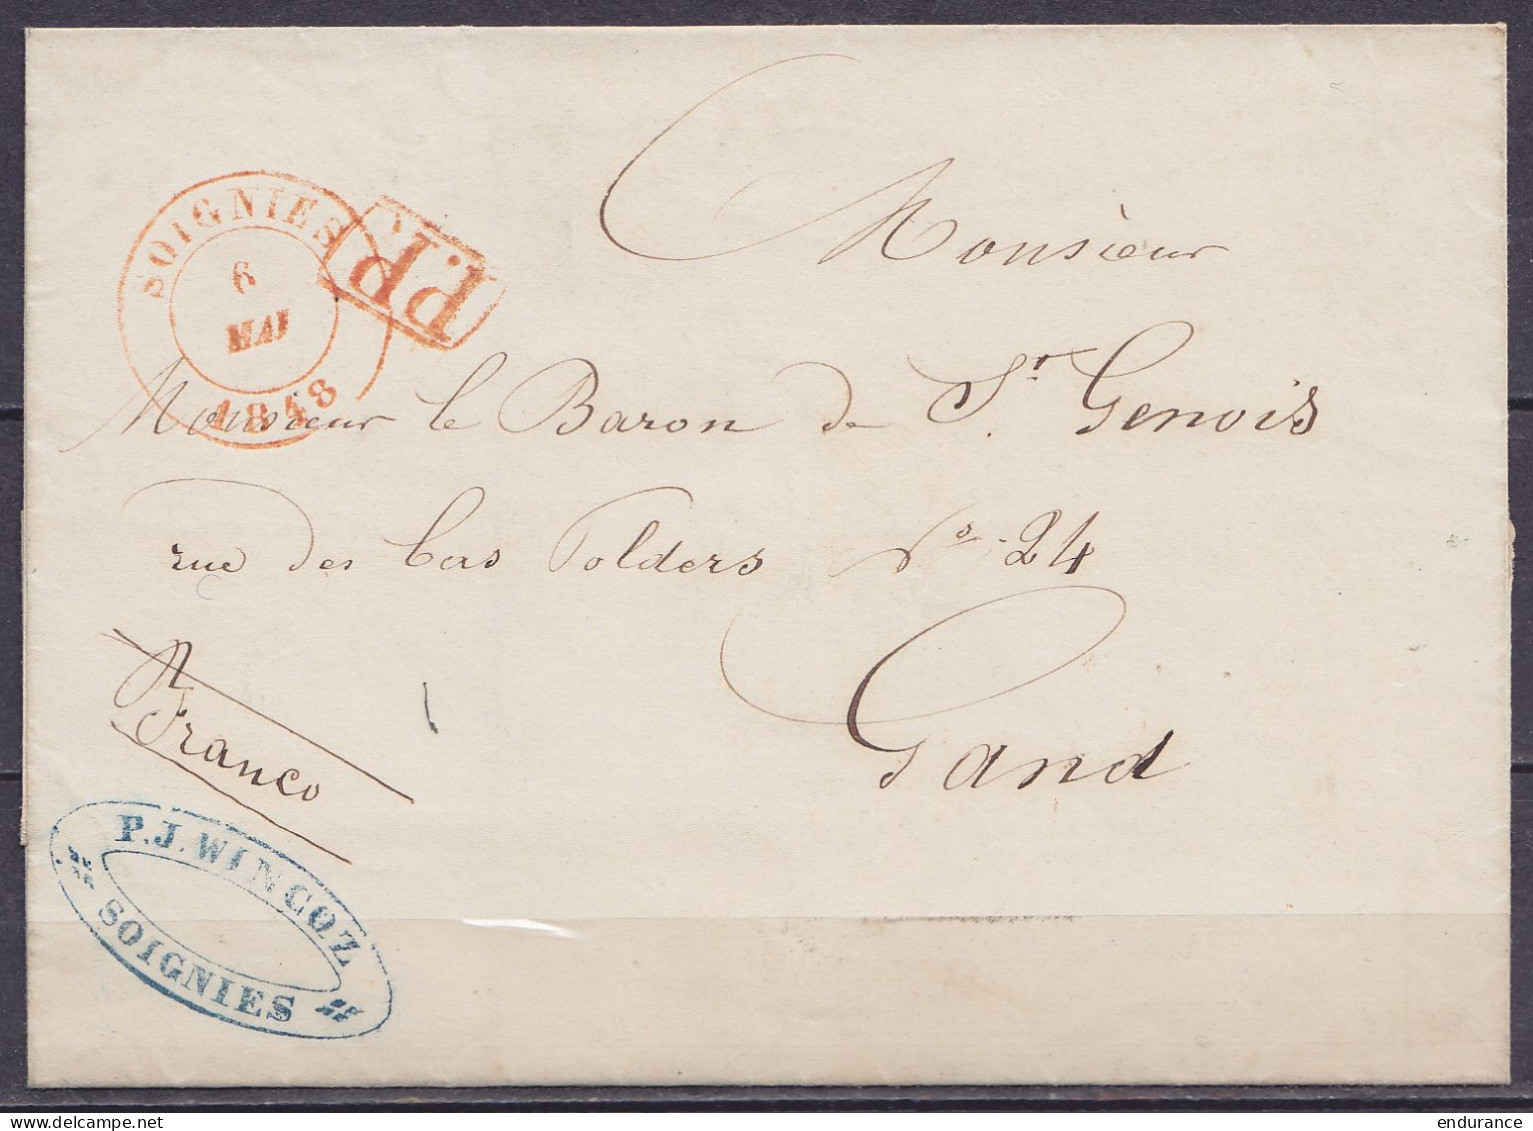 SOIGNIES
6
MAI
1848
P.P.
Monsieur
Monsieur le Baron de St. Genois
rue des bas Polders No 24
Gand
Franco
P.J. WINCOZ
SOIGNIES
endurance